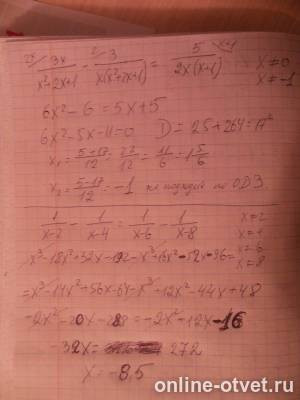 3x/(x²+2x+1) - 3/(x(x²+2x+1)) = 5/(2x(x+1)) x≠0
x≠-1
6x²-6=5x+5
6x²-5x-11=0 D=25+264=17²
x₁=(5+17)/12=22/12=11/6=1 5/6
x₂=(5-17)/12=-1 не подход по ОДЗ.
1/(x-2) - 1/(x-4) = 1/(x-6) - 1/(x-8) x=2
x=4
x=6
x=8
=x³-14x²+56x-64-x³+12x²-44x+48
-2x²-20x-288=-2x²-12x-16
-32x=272
x=-8,5
online-otvet.ru